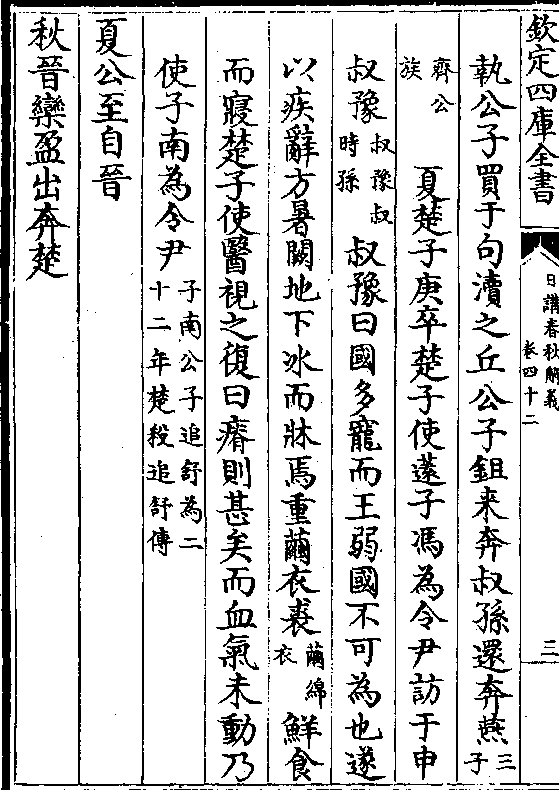 欽定四庫全書
日講春秋解義
卷四十二
三
執公子買于句瀆之丘公子鉏来奔叔孫還奔燕三子
齊公族　夏楚子庚卒楚子使薳子馮為令尹訪于申
叔豫叔豫叔時孫叔豫曰國多寵而王弱國不可為也遂
以疾辭方暑闕地下冰而牀焉重繭衣裘繭綿衣鮮食
而寢楚子使醫視之復曰瘠則甚矣而血氣未動乃
使子南為令尹子南公子追舒為二十二年楚殺追舒傳
夏公至自晉
秋晉欒盈出奔楚